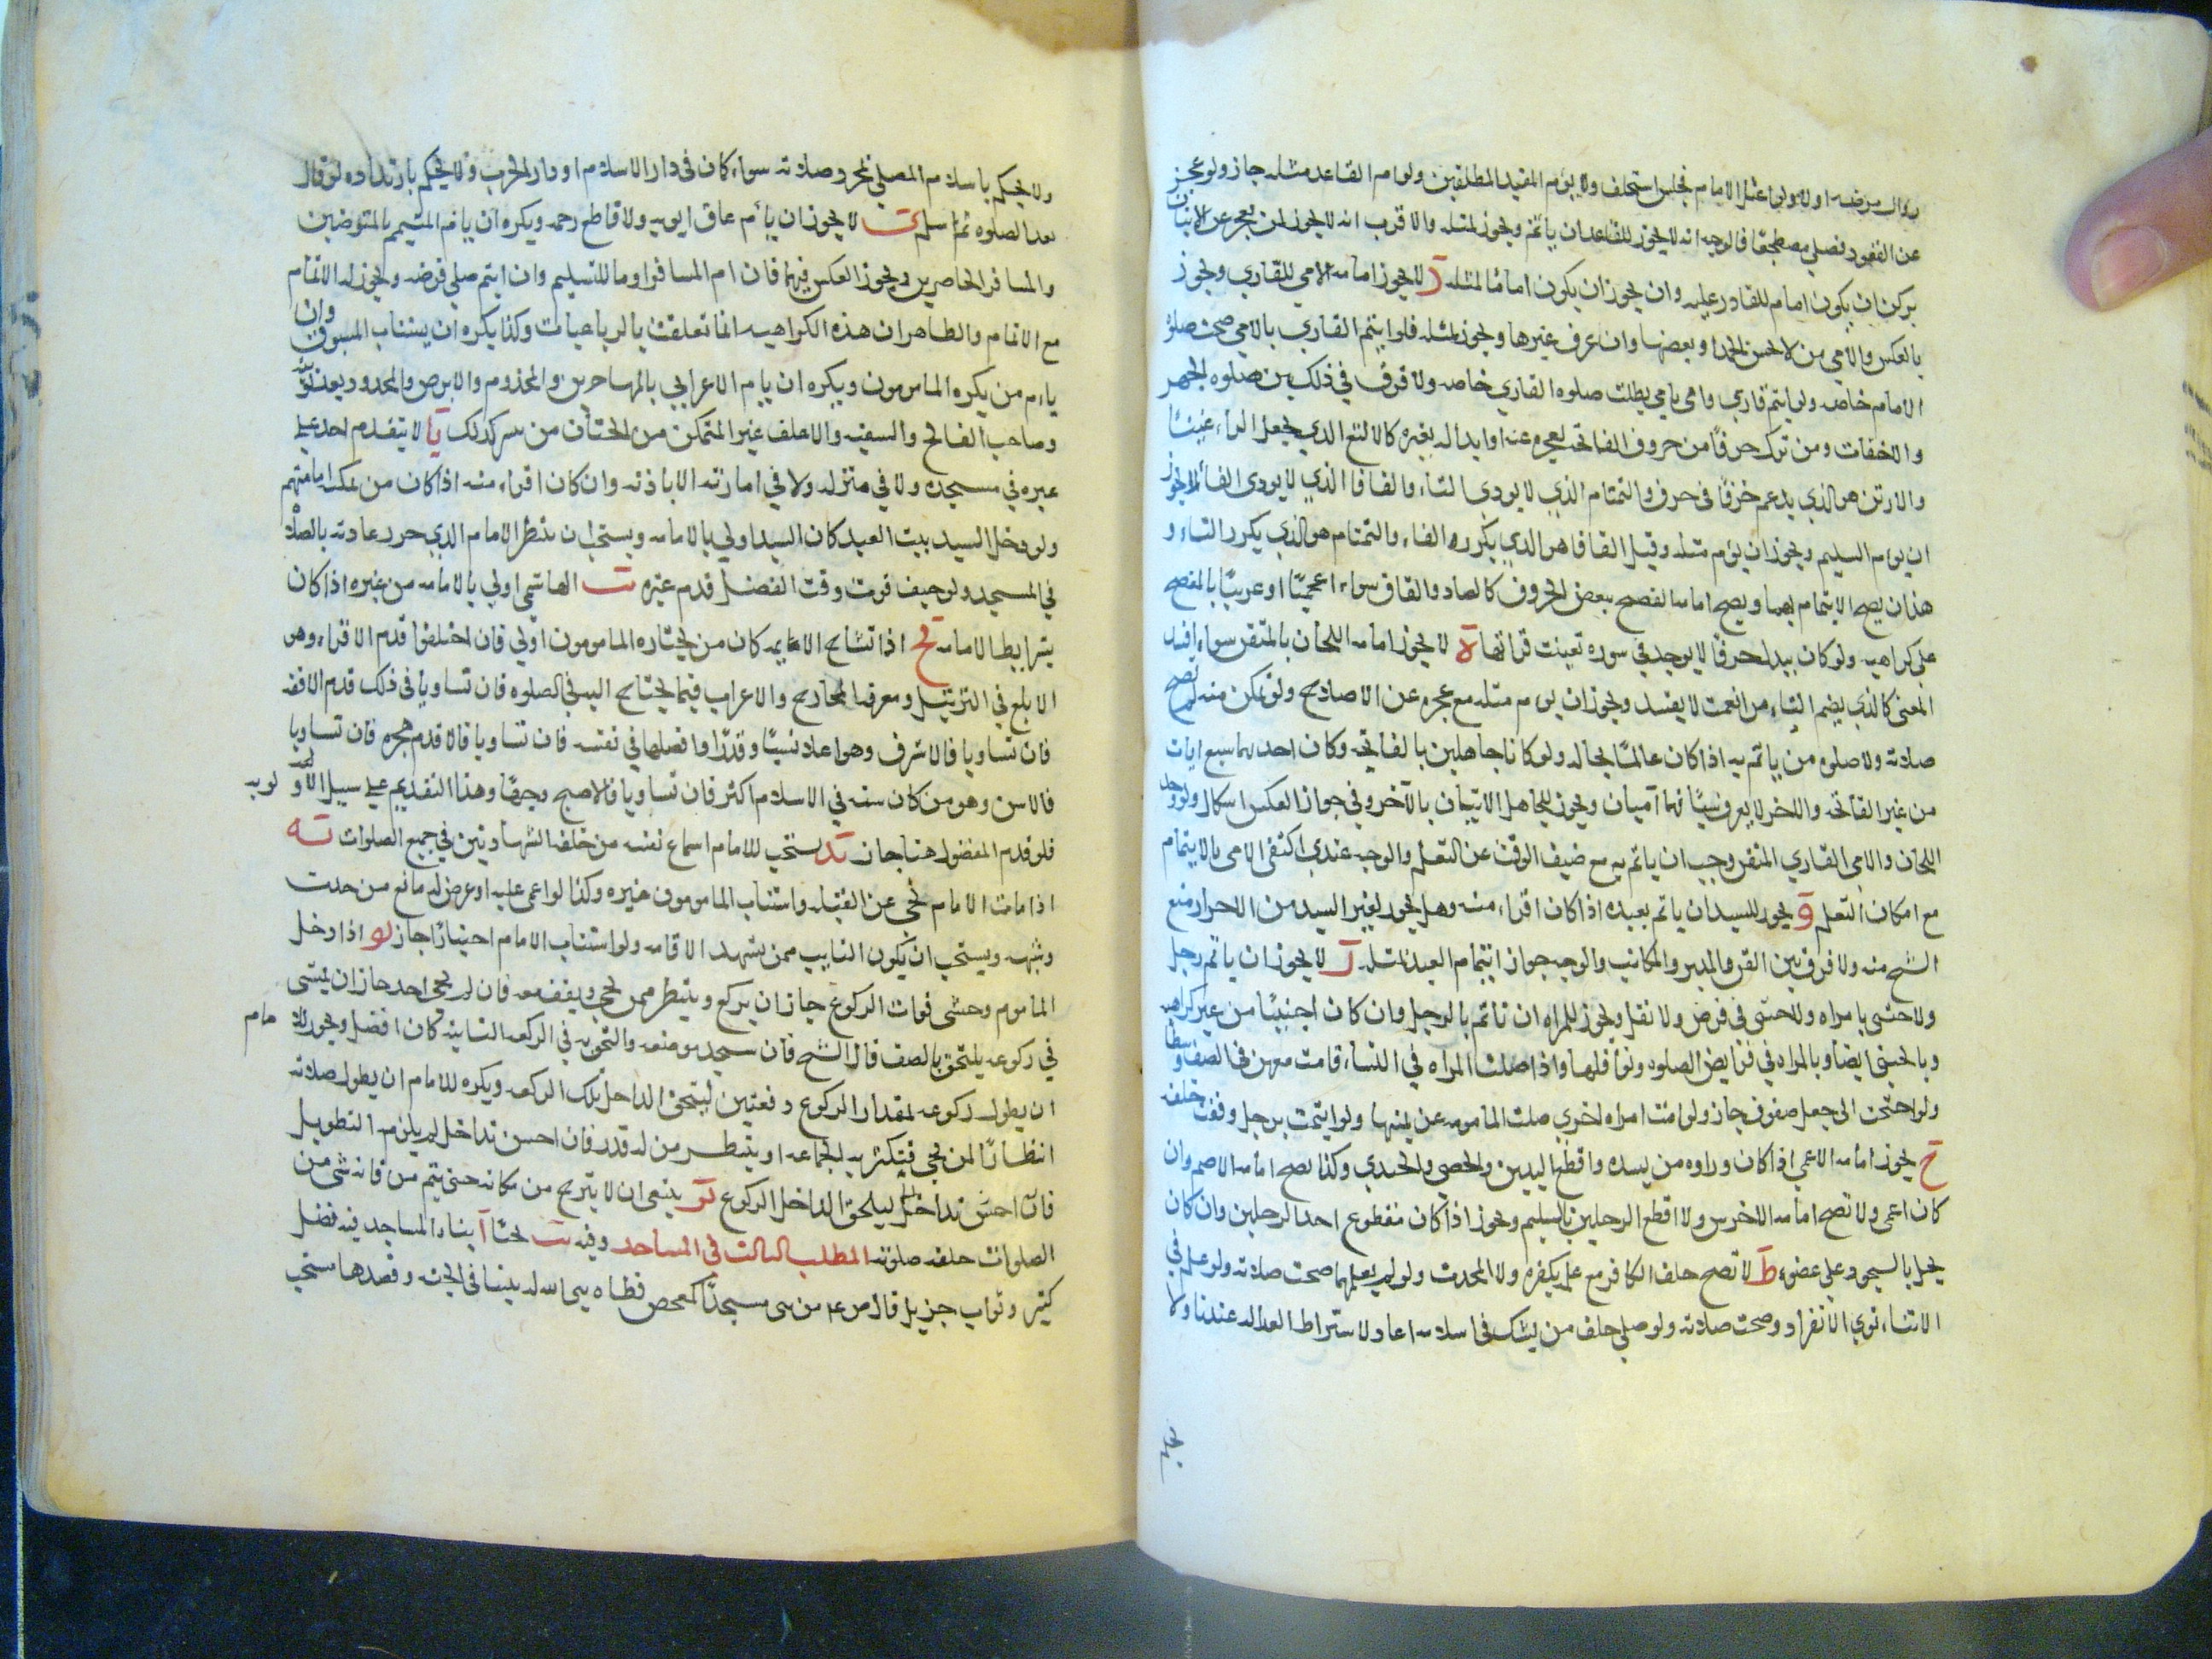 زوال مرضه اولا ولو اعتل الامام فجلس استخلف ولا يؤم المقيد المطلقين ولو ام القاعد مثله جاز ولو عجز
عن القعود فصلي مضطجعا فالوجه انه لا يجوز للقاعد ان ياتم ويجوز لمثله والاقرب انه لا يجوز لمن يعجز عن الاتيان
بركن ان يكون امام للقادر عليه وان يجوز ان يكون اماما لمثله د لا يجوز امامه الامي للقاري ويجوز
بالعكس والامي من لا يحسن الحمد او بعضها وان عرف غيرها ويجوز لمثله فلو ايتم القاري بالامي صحت صلوة
الامام خاصه ولو ايتم قاري وامي بامي بطلت صلوه القاري خاصه ولا فرق في ذلك بين صلوه الجهر
والاخفات ومن ترك حرفا من حروف الفاتحه لعجزه عنه او ابداله بغيره كالالثغ الذي يجعل الراء غينا
والارت هو الذي يدغم حرفا في حرف والتمتام الذي لا يودي التاء والفافا الذي لا يودي الفاء لا يجوز
ان يؤم السليم ويجوز ان يؤم مثله وقيل الفافا هو الذي يكرر الفاء والتمتام هو الذي يكرر التاء و
هذان يصح الايتمام بهما ويصح امامه الفصيح ببعض الحروف كالصاد والقاف سواء اعجميا او عربيا بالمفصح
علي كراهيه ولو كان يبدل حرفا لا يوجد في سوره تعينت قراتها ه لا يجوز امامه اللحان بالمتقن سواء افسد
المعني كالذي يضم التاء من انعمت لا يفسد ويجوز ان يؤم مثله مع عجزه عن الاصلاح ولو تمكن منه لم تصح
صلاته ولا صلوه من ياتم به اذا كان عالما بحاله ولو كانا جاهلين بالفاتحه وكان احدهما سبع ايات
من غير الفاتحه والاخر لا يعرف شيا فهما اميان ويجوز للجاهل الايتمان بالآخر وفي جواز العكس اشكال ولو وجد
اللحان والامي القاري المتقن وجب ان ياتم به مع ضيق الوقت عن التعلم والوجه عندي اكتفي الامي بالايتمام
مع امكان التعلم و يجوز للسيد ان ياتم بعبده اذا كان اقراء منه وهل يجوز لغير السيد من الاحرار منع
الشيخ منه ولا فرق بين القن والمدبر والمكاتب والوجه جواز ايتمام العبد لمثله ز لا يجوز ان ياتم رجل
ولا خنثي بامراه ولا خنثي في فرض ولا نفل ويجوز للمراه ان تاتم بالرجل وان كان اجنبيا من غير كراهيه
وبالخنثي ايضا وبالمراه في فرايض الصلوه ونوافلها واذا صلت المراه في النساء قامت معهن في الصف وسطا
ولو احتجن الي جعل صفوف جاز ولو امت امراه لاخري صلت المامومه عن يمينها ولو ايتمت برجل وقفت خلفه
ح يجوز امامه الاعمي اذا كان وراوه من يسدده واقطع اليدين والخصي والجندي وكذا تصح امامه الاصم وان
كان اعمي ولا تصح امامه الاخرس ولا اقطع الرجلين بالسليم ويجوز اذا كان مقطوع احد الرجلين وان كان
يخل بالسجود علي عضو ط لا تصح خلف الكافر مع علم بكفره ولا المحدث ولو لم يعلمهما صحت صلاته ولو علم في
الاثناء نوي الانفراد وصحت صلاته ولو صلي خلف من يشك في اسلامه اعاد لاشتراط العداله عندنا ولا
ولا يحكم باسلام المصلي بمجرد صلاته سواء كان في دار الاسلام او دار الحرب ولا يحكم بارتداده لو قال
بعد الصلوه لم اسلم لا يجوز ان يأم عاق ابويه ولا قاطع رحمه ويكره ان ياتم المتيمم بالمتوضين
والمسافر الحاضرين ويجوز العكس فيهما فان ام المسافر اوما للتسليم وان ايتم صلي فرضه ويجوز له الاتمام
مع الاتمام والظاهر ان هذه الكراهيه انما تعلقت بالرباعيات وكذا يكره ان يستناب المسبوق وان
يام من يكره المامومون ويكره ان يام الاعرابي بالمهاجرين والمجذوم والابرص والمحدود بعد توبته
وصاحب الفالج والسفيه والاغلف غير المتمكن من الختان من سركذلك يا لا يتقدم احد علي
غيره في مسجده ولا في منزله ولا في امارته الا باذنه وان كان اقراء منه اذا كان ممن يمكنه امامتهم
ولو دخل السيد بيت العبد كان السيد اولي بالامامه ويستحب ان ينتظر الامام الذي جرت عادته بالصلاه
في المسجد ولو خيف فوت وقت الفضل قدم غيره يب الهاشمي اولي بالامامه من غيره اذا كان
بشرايط الامامه يح اذا تشاح الائمه كان من يختاره المامومون اولي فان اختلفوا قدم الاقراء وهو
الابلغ في الترتيل ومعرفه المخارج والاعراب فيما يحتاج اليه في الصلوه فان تساويا في ذلك قدم الافقه
فان تساويا فالاشرف وهو اعلا نسبا وقدرا وافضلها في نفسه فان تساويا فالاقدم هجره فان تساويا
فالاسن وهو من كان سنه في الاسلام اكثر فان تساويا فالاصبح وجها وهذا التقديم علي سبيل الاولويه
فلو قدم المفضول هنا جاز يد يستحب للامام اسماع نفسه من خلفه الشهادتين في جميع الصلوات يه
اذا مات الامام نحي عن القبله واستناب المامومون غيره وكذا لو اغمي عليه او عرض له مانع من حدث
وشبهه ويستحب ان يكون النايب ممن يشهد الاقامه ولو استناب الامام اختيارا جاز يو اذا دخل
الماموم وخشي فوات الركوع جاز ان يركع وينتظر ممن يجي ويقف معه فان لم يجي احد جاز ان يمشي
في ركوعه يلتحق بالصف قال الشيخ فان سجد موضعه والتحق به في الركعه الثانيه كان افضل ويجوز للامام
ان يطول ركوعه بمقدار الركوع دفعتين ليلتحق الداخل بتلك الركعه ويكره للامام ان يطول صلاته
انتظارا لمن يجي فيتكثر به الجماعه او ينتظر من له قدر فان احسن تداخل لم يلزمه التطويل
فان احس بداخل ليلحق الداخل الركوع يز ينبغي ان لا يبرح من مكانه حتي يتم من فاته شي من
الصلوات خلفه صلوته المطلب الثالث في المساجد وفيه يب بحثا آ بناء المساجد فيه فضل
كثير وثواب جزيل قال ص ع من بني مسجدا كمفحص قطاه بني الله له بيتا في الجنه وقصدها مستحب